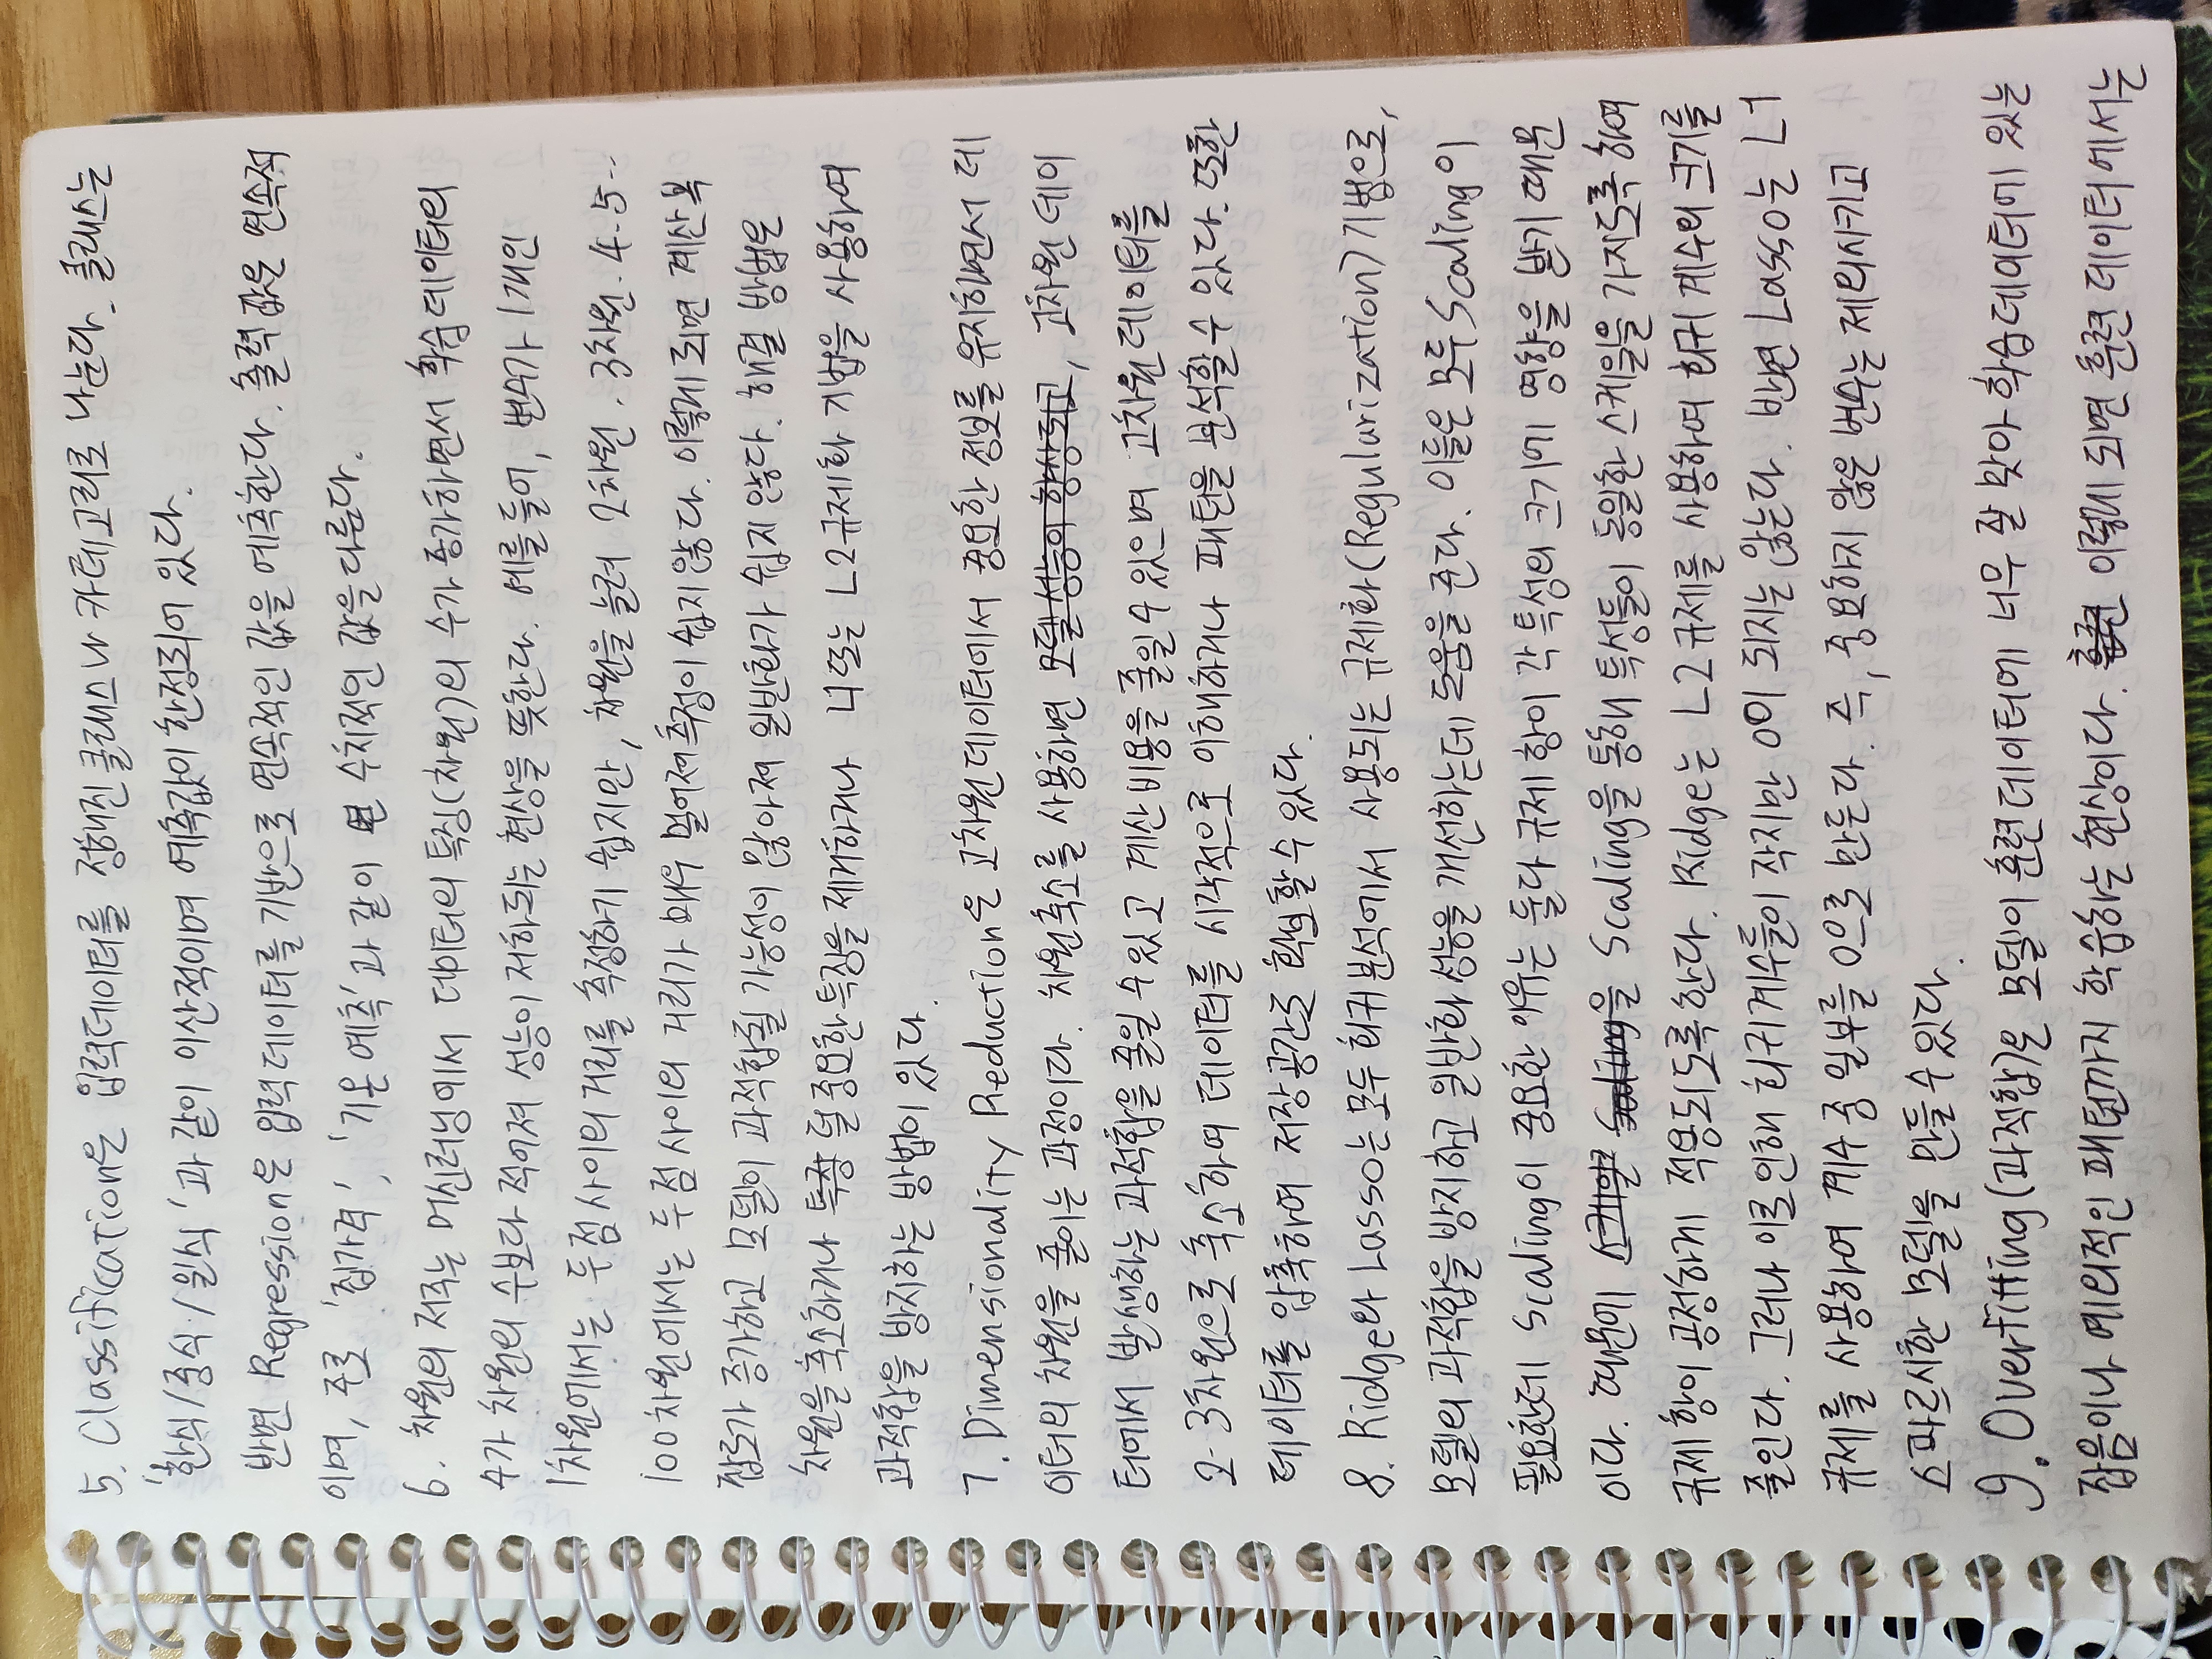 5. Classification은 입력데이터를 정해진 클래스나 카테고리로 나눈다. 클래스는
'한식/중식/일식'과 같이 이산적이며 예측값이 한정되어 있다.
반면 Regression은 입력 데이터를 기반으로 연속적인 값을 예측한다. 출력 값은 연속적
이며, 주로 '집가격', '기온 예측'과 같이 수치적인 값을 다룬다.
6. 차원의 저주는 머신러닝에서 데이터의 특징(차원)의 수가 증가하면서 학습데이터의
수가 차원의 수보다 적어져 성능이 저하되는 현상을 뜻한다. 예를 들어, 변수가 1개인
1차원에서는 두 점 사이의 거리를 측정하기 쉽지만, 차원을 늘려 2차원. 3차원. 4.5..
100차원에서는 두 점 사이의 거리가 매우 멀어져 측정이 쉽지 않다. 이렇게 되면 계산 복
잡도가 증가하고 모델이 과적합될 가능성이 많아져 일반화가 쉽지 않다. 해결 방법은
차원을 축소하거나 특징 덜 중요한 특징을 제거하거나 L1또는 L2규제화 기법을 사용하여
과적합을 방지하는 방법이 있다.
7. Dimensionality Reduction은 고차원 데이터에서 중요한 정보를 유지하면서 데
이터의 차원을 줄이는 과정이다. 차원축소를 사용하면 모델 성능이 향상되고, 고차원 데이
터에서 발생하는 과적합을 줄일 수 있고 계산 비용을 줄일 수 있으며 고차원 데이터를
2-3차원으로 축소하여 데이터를 시각적으로 이해하거나 패턴을 분석할 수 있다. 또한
데이터를 압축하여 저장공간도 확보할 수 있다.
8. Ridge와 Lasso는 모두 회귀 분석에서 사용되는 규제화(Regularization) 기법으로,
모델의 과적합을 방지하고 일반화 성능을 개선하는데 도움을 준다. 이들은 모두 Scaling이
필요한데 Scaling이 중요한 이유는 둘다 규제 항이 각 특성의 크기에 영향을 받기 때문
이다. 때문에 스케일 Scaling을 Scaling을 통해 특성들이 동일한 스케일을 가지도록 하여
규제 항이 공정하게 적용되도록 한다. Ridge는 L2규제를 사용하여 회귀 계수의 크기를
줄인다. 그러나 이로 인해 회귀계수들이 작지만 0이 되지는 않는다. 반면 Lasso는 L1
규제를 사용하여 계수 중 일부를 0으로 만든다. 즉, 중요하지 않은 변수는 제외시키고
스파르시한 모델을 만들 수 있다.
9. Overfitting(과적합)은 모델이 훈련데이터에 너무 잘 맞아 학습데이터에 있는
잡음이나 예외적인 패턴까지 학습하는 현상이다. 훈련 이렇게 되면 훈련 데이터에서는